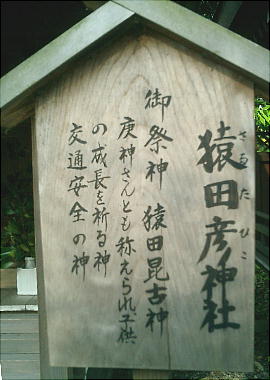 猿田彦神社
さるたひこ
御祭神 猿田昆古神
庚神さんとも称えられ子供
の成長を祈る神
交通安全の神